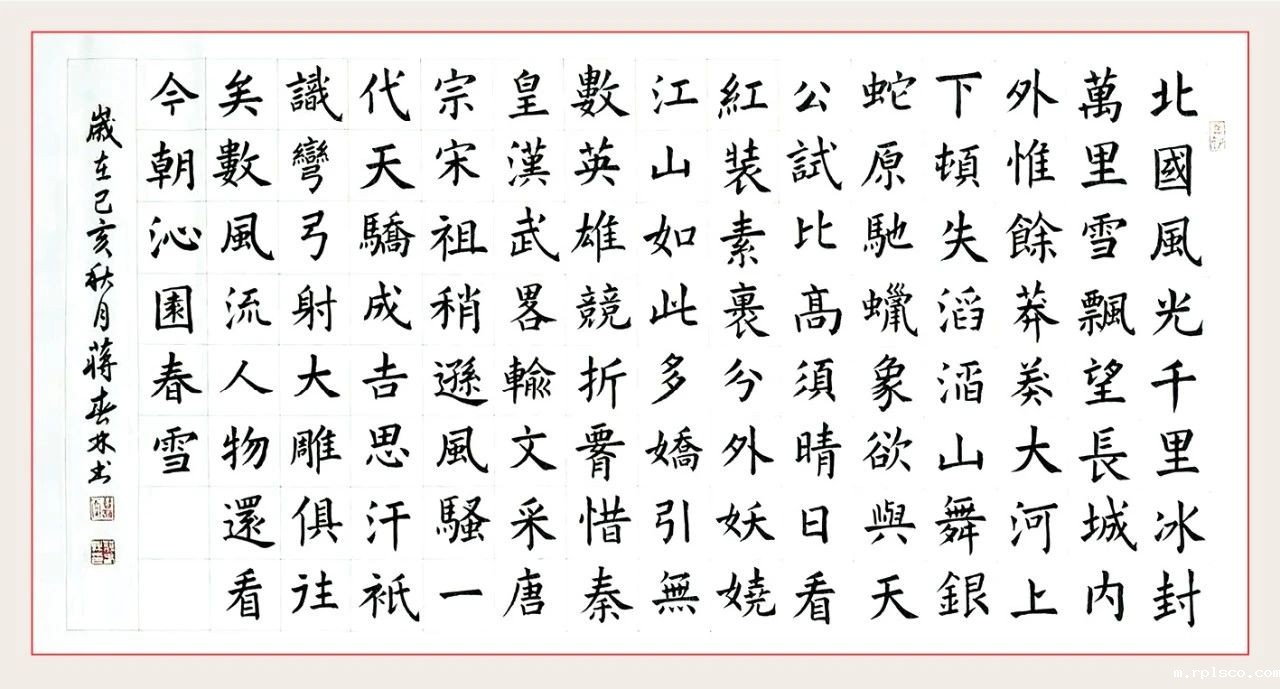 北國風光千里冰封
萬里雪飄望長城内
外惟餘莽莽大河上
下頓失滔滔山舞銀
蛇原馳蠟象欲與天
公試比高須晴日看
紅裝素裹分外妖嬈
江山如此多嬌引無
數英雄競折腰惜秦
皇漢武畧輸文采唐
宗宋祖稍遜風騷一
代天驕成吉思汗祇
識彎弓射大雕俱往
矣數風流人物還看
今朝沁園春雪
歲在己亥秋月蔣春林书
m.rplsco.com